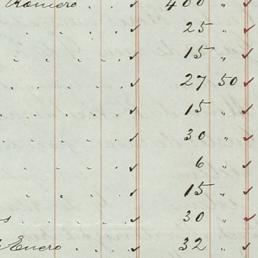 Romero . . ✓ 400 " ✓
. . . . ✓ 25 " ✓
. . . . ✓ 15 " ✓
. . . . ✓ 27 50 ✓
. . . . ✓ 15 " ✓
. . . . ✓ 30 " ✓
. . . . ✓ 6 " ✓
. . . . ✓ 15 " ✓
s . . . ✓ 30 " ✓
Enero . . ✓ 32 " ✓